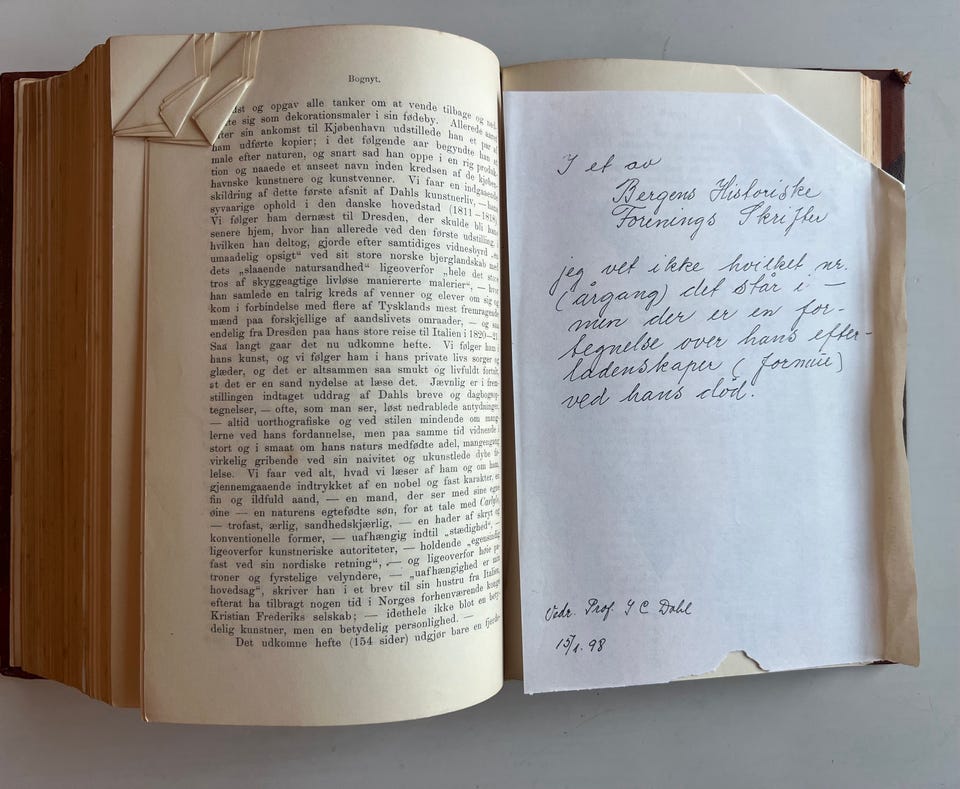 Bognyt.
og opgav alle tanker om at vende tilbage og
sig som dekorationsmaler i sin fødeby. Allerede
sin ankomst til Kjøbenhavn udstillede han et par af
ham udførte kopier; i det følgende aar begyndte han at
male efter naturen, og snart sad han oppe i en rig produk-
tion og naaede et anseet navn inden kredsen af de kjøben-
havnske kunstnere og kunstvenner. Vi faar en indgaaende
skildring af dette første afsnit af Dahls kunstnerliv, — hans
syvaarige ophold i den danske hovedstad (1811—1818).
Vi følger ham dernæst til Dresden, der skulde bli hans
senere hjem, hvor han allerede ved den første udstilling, i
hvilken han deltog, gjorde efter samtidiges vidnesbyrd „en
umaadelig opsigt“ ved sit store norske bjerglandskab med
dets „slaaende natursandhed“ ligeoverfor „hele det store
tros af skyggeagtige livløse maniererte malerier“, — hvor
han samlede en talrig kreds af venner og elever om sig og
kom i forbindelse med flere af Tysklands mest fremragende
mænd paa forskjellige af aandslivets omraader, — og saa
endelig fra Dresden paa hans store reise til Italien i 1820—21.
Saa langt gaar det nu udkomne hefte. Vi følger ham i
hans kunst, og vi følger ham i hans private livs sorger og
glæder, og det er altsammen saa smukt og livfuldt fortalt,
at det er en sand nydelse at læse det. Jævnlig er i frem-
stillingen indtaget uddrag af Dahls breve og dagbogsop-
tegnelser, — ofte, som man ser, løst nedrablede antydninger,
— altid uorthografiske og ved stilen mindende om mang-
lerne ved hans fordannelse, men paa samme tid vidnende i
stort og i smaat om hans naturs medfødte adel, mangengang
virkelig gribende ved sin naivitet og ukunstlede dybe fø-
lelse. Vi faar ved alt, hvad vi læser af ham og om ham,
gjennemgaaende indtrykket af en nobel og fast karakter, en
fin og ildfuld aand, — en mand, der ser med sine egne
øine — en naturens egtefødte søn, for at tale med Carlyle,
— trofast, ærlig, sandhedskjærlig, — en hader af skryt og
konventionelle former, — uafhængig indtil „stædighed“, —
ligeoverfor kunstneriske autoriteter, — holdende „egensindig
fast ved sin nordiske retning“, — og ligeoverfor høie pa-
troner og fyrstelige velyndere, — „uafhængighed er min
hovedsag“, skriver han i et brev til sin hustru fra Italien,
efterat ha tilbragt nogen tid i Norges forhenværende konge
Kristian Frederiks selskab; — idethele ikke blot en bety-
delig kunstner, men en betydelig personlighed. —
Det udkomne hefte (154 sider) udgjør bare en fjerde-
I et av
Bergens Historiske
Forenings Skrifter
jeg vet ikke hvilket nr.
(årgang) det står i —
men der er en for-
tegnelse over hans efter-
ladenskaper (formue)
ved hans død.
Vedr. Prof. I C Dahl
15/1. 98